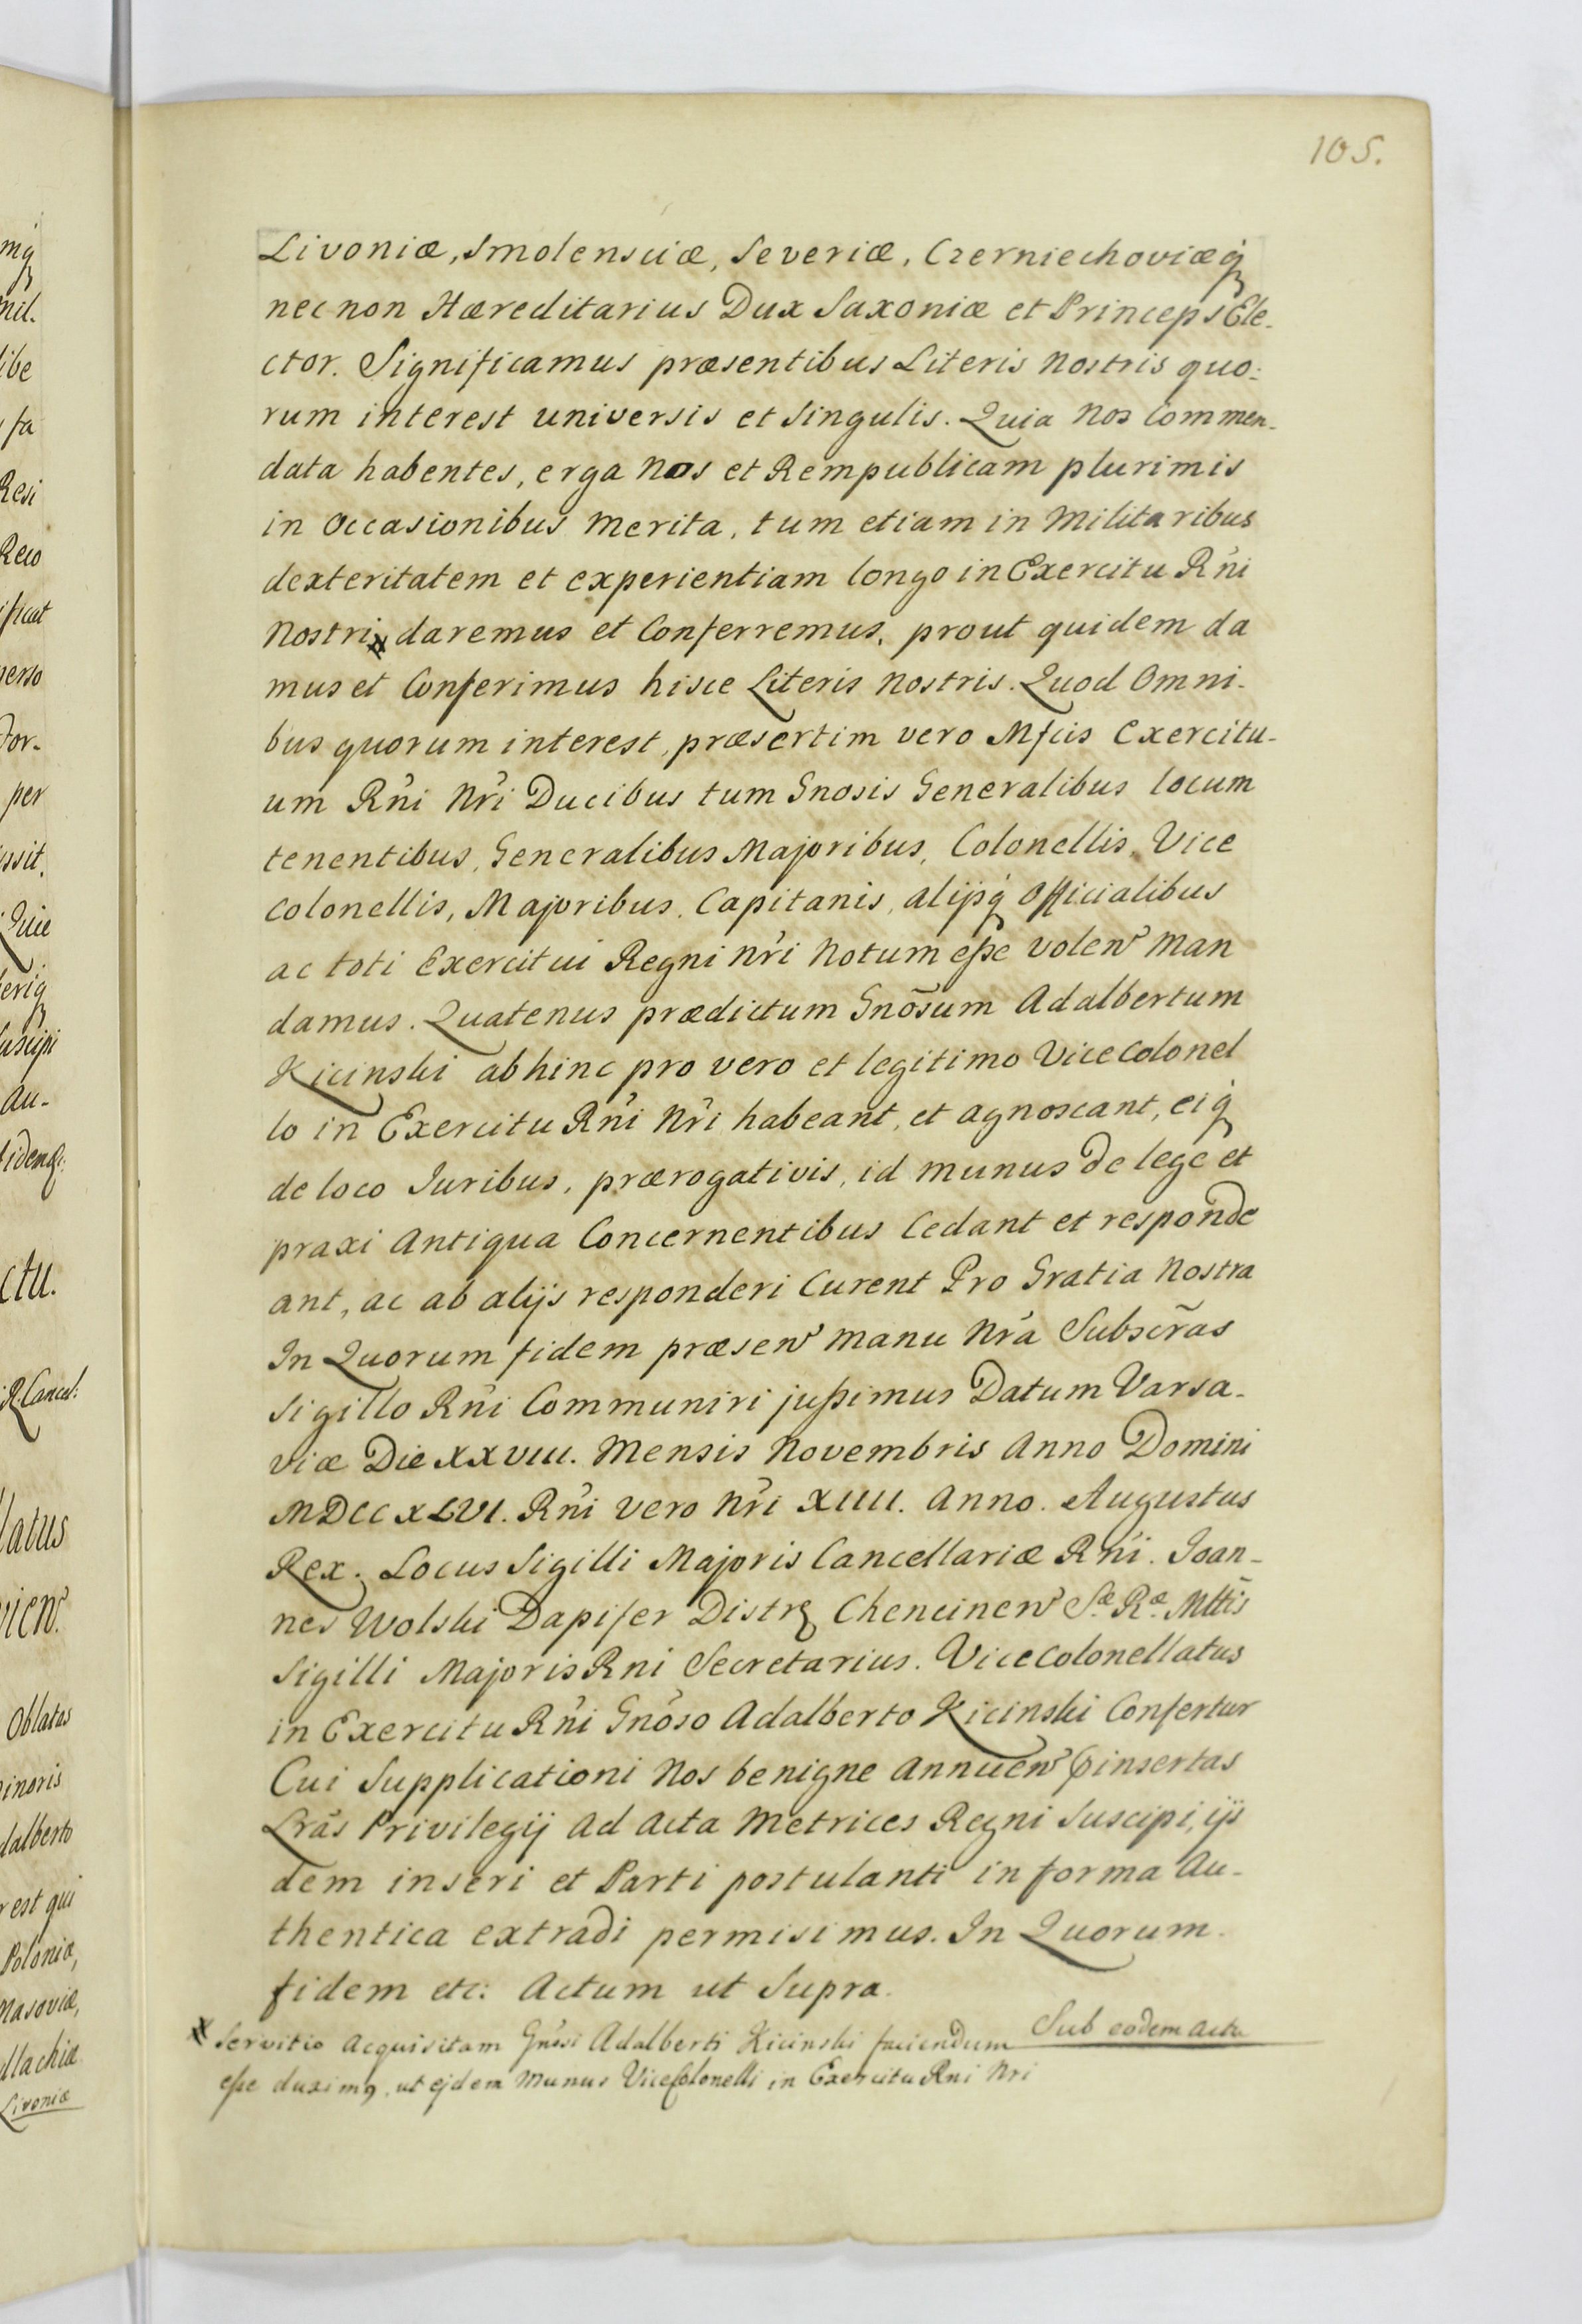 mq
mil.
libe
fa
Resi
Reco
ificat
perso
For-
per
ssit.
Quie
feriq
suscipi
au-
fidemq:
ctu.
R Cancel:
latus
vien.
Oblatas
minoris
dalberto
r est qui
Polonia,
Masoviæ,
llachiæ
Livoniæ
105.
Livoniæ, Smolensciæ, Severiæ, Czerniechoviæq
nec non Hæreditarius Dux Saxoniæ et Princeps Ele-
ctor. Significamus præsentibus Literis Nostris quo:
rum interest universis et Singulis. Quia Nos Commen-
data habentes, erga Nos et Rempublicam plurimis
in Occasionibus Merita, tum etiam in Militaribus
dexteritatem et experientiam longo in Exercitu Rñi
Nostri # daremus et Conferremus, prout quidem da
mus et Conferimus hisce Literis Nostris. Quod Omni-
bus quorum interest, præsertim vero Mfcis Exercitu-
um Rñi Nri Ducibus tum Gnosis Generalibus locum
tenentibus, Generalibus Majoribus, Colonellis, Vice
colonellis, Majoribus, Capitanis, alijsq Officialibus
ac toti Exercitui Regni Nri Notum eße volen Man
damus. Quatenus prædictum Gnõsum Adalbertum
Kicinski abhinc pro vero et legitimo Vice Colonel
lo in Exercitu Rñi Nri habeant, et agnoscant, eiq
de loco Juribus, prærogativis, id munus de lege et
praxi Antiqua Concernentibus Cedant et responde
ant, ac ab alijs responderi Curent Pro Gratia Nostra
In Quorum fidem præsen manu Nra Subscr̃as
Sigillo Rñi Communiri jußimus Datum Varsa-
viæ Die XXVIII. Mensis Novembris Anno Domini
MDCCXLVI. Rñi vero Nri XIIII. Anno. Augustus
Rex. Locus Sigilli Majoris Cancellariæ Rñi. Joan-
nes Wolski Dapifer Districtus Chencinen Sæ Ræ Mttis
Sigilli Majoris Rni Secretarius. Vice Colonellatus
in Exercitu Rñi Gnoso Adalberto Kicinski Confertur
Cui Supplicationi Nos benigne Annuen pinsertas
Lras Privilegij Ad Acta Metrices Regni Suscipi, ijs
dem inseri et Parti postulanti in forma Au-
thentica extradi permisimus. In Quorum
fidem etc: Actum ut Supra.
Sub eodem Actu
# Servitio Acquisitam Gnosi Adalberti Kicinski faciendum
eße duximq, ut ejdem Munus ViceColonelli in Exercitu Rni Nri